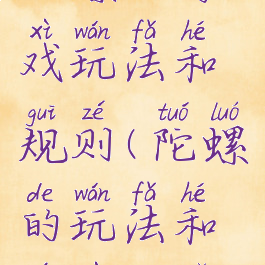 xì wán fǎ hé
戏玩法和
guī zé tuó luó
规则(陀螺
de wán fǎ hé
的玩法和